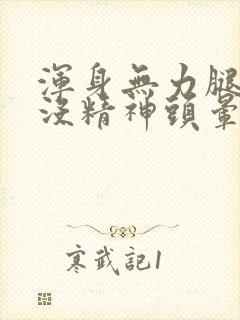 渾身無力腿
沒精神頭暈
寒武記1